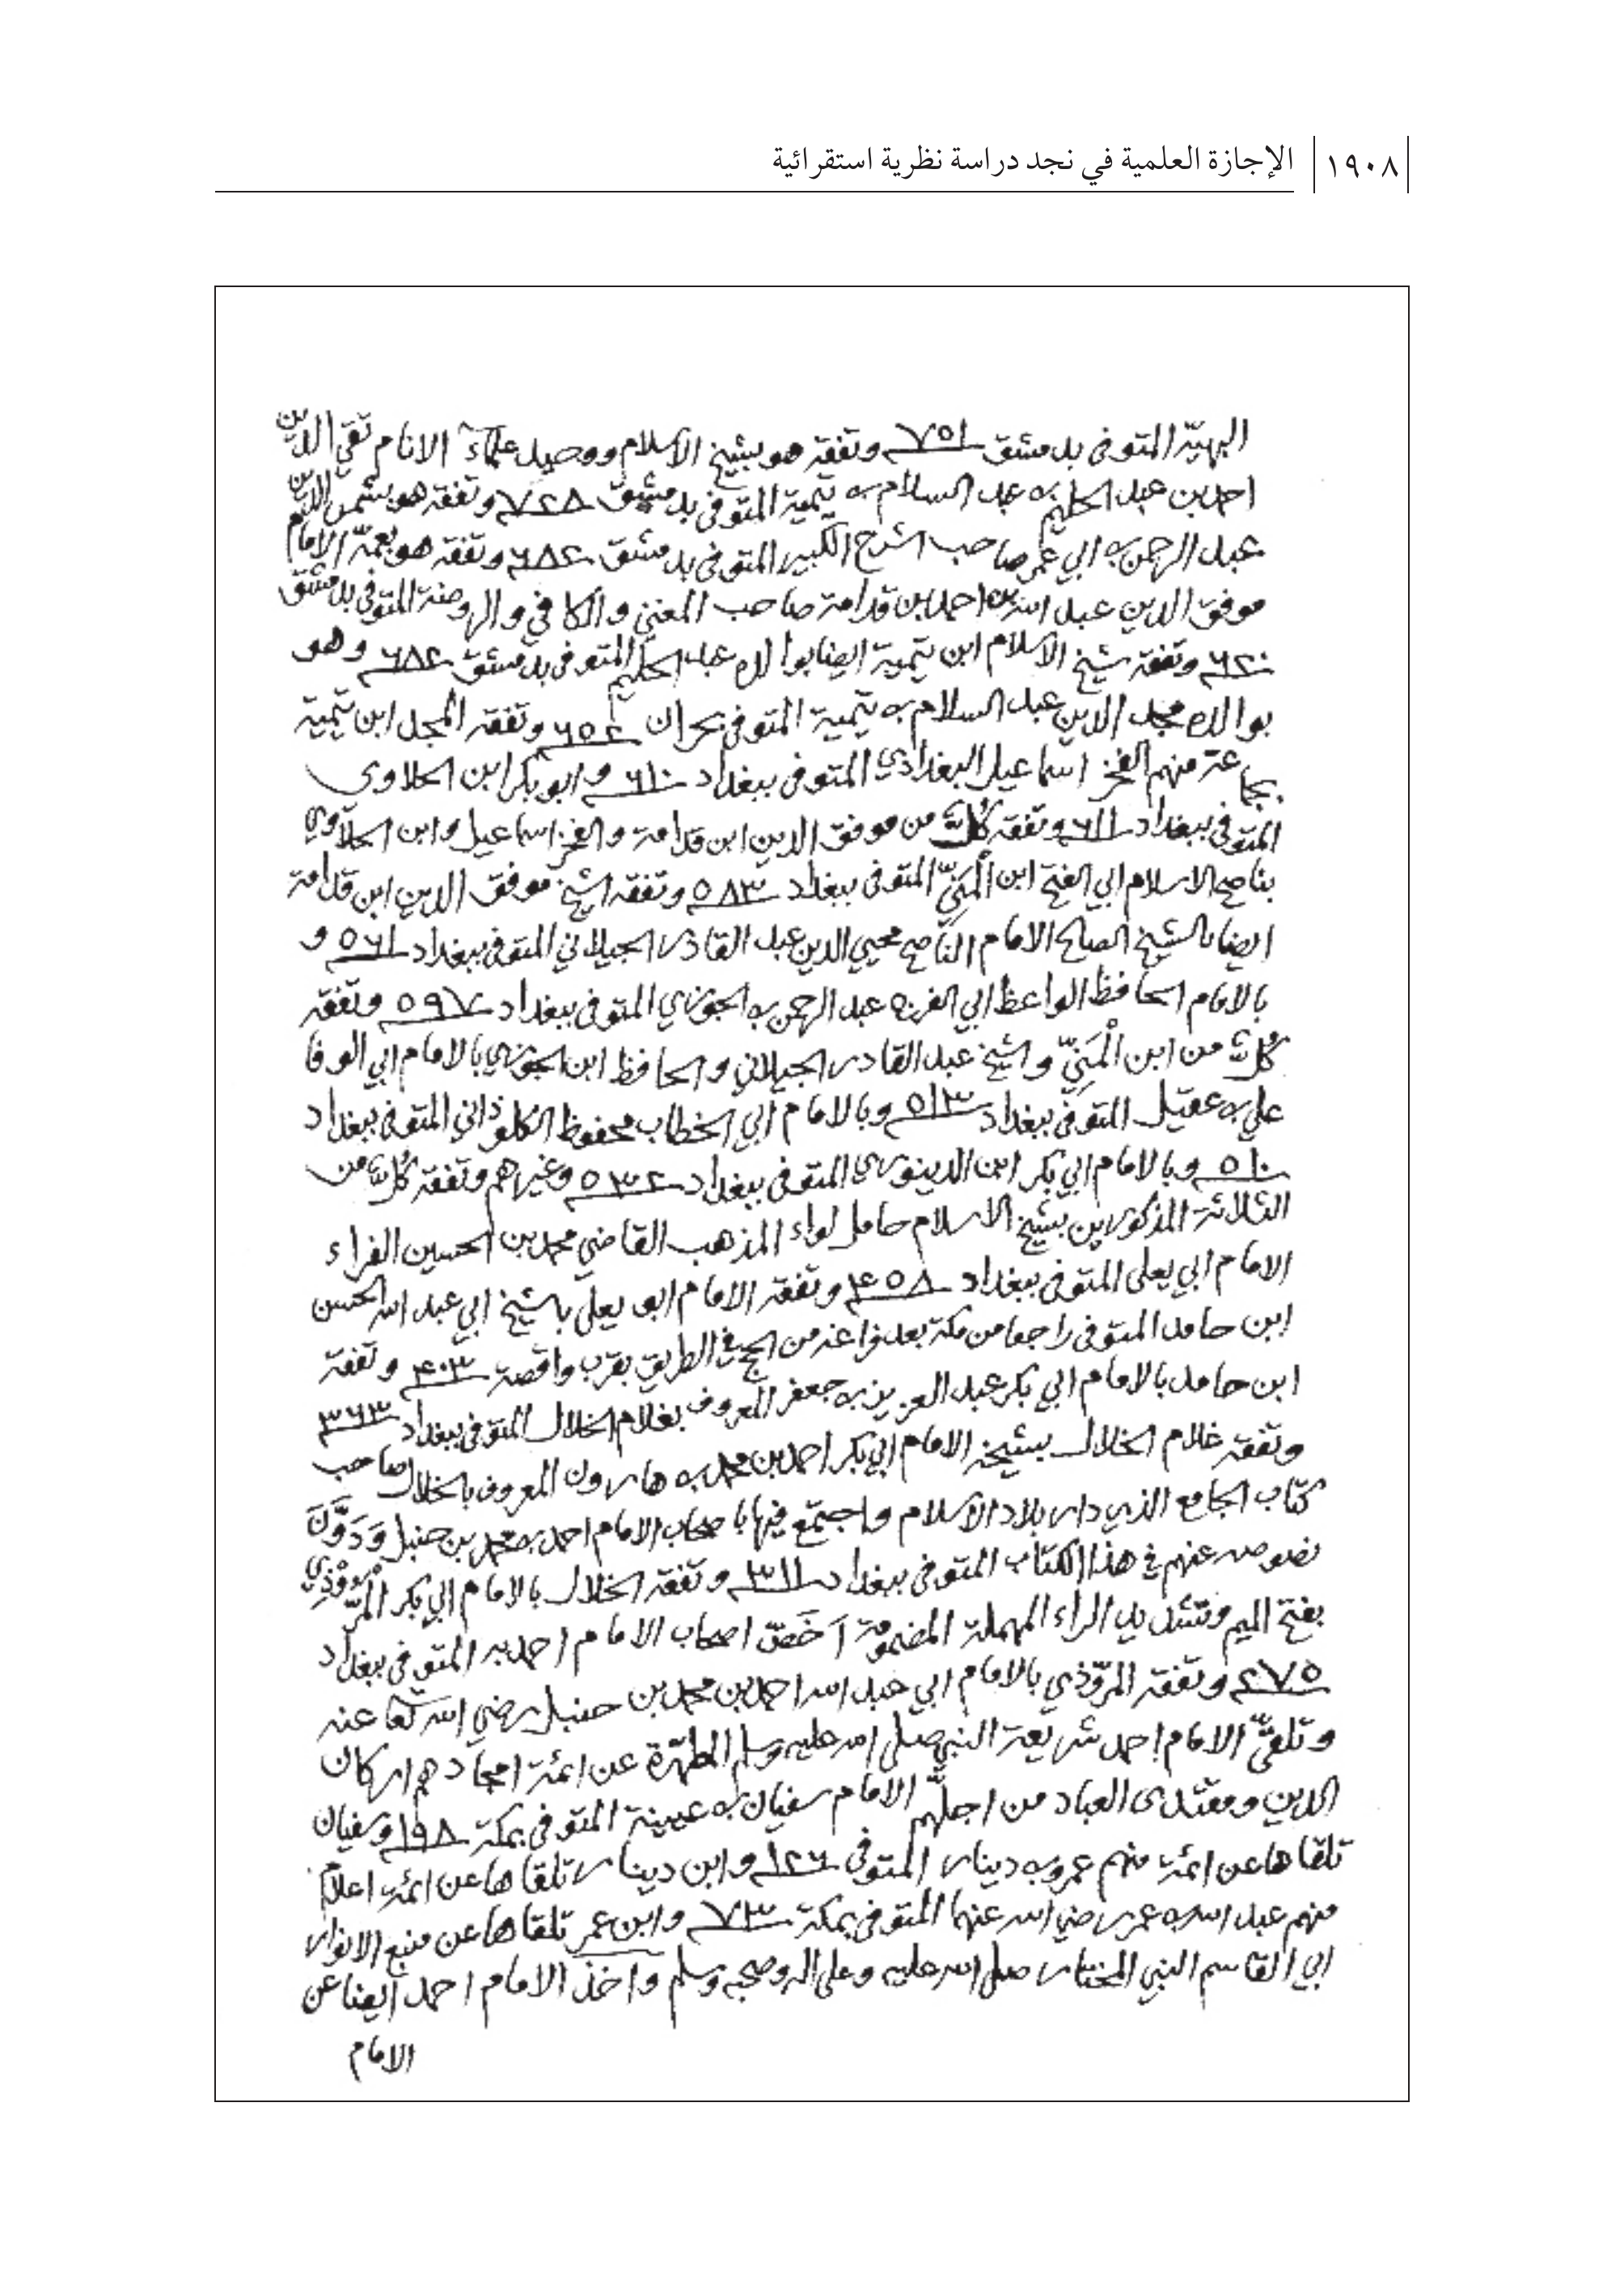 ١٩٠٨ الإجازة العلمية في نجد دراسة نظرية استقرائية
البهيّة المتوفى بدمشق ٧٥١ وتفقه هو بشيخ الاسلام ووحيد علماء الانام تقي الدين
احمد بن عبد الحليم بن عبد السلام بن تيمية المتوفى بدمشق ٧٢٨ وتفقه هو بشمس الدين
عبد الرحمن بن ابي عمر صاحب الشرح الكبير المتوفى بدمشق ٦٨٢ وتفقه هو بعمّه الامام
موفق الدين عبد الله بن احمد بن قدامة صاحب المغني والكافي والروضة المتوفى بدمشق
٦٢٠ وتفقه شيخ الاسلام ابن تيمية ايضا بوالده عبد الحليم المتوفى بدمشق ٦٨٢ وهو
بوالده مجد الدين عبد السلام بن تيمية المتوفى بحران ٦٥٢ وتفقه المجد ابن تيمية
بجماعة منهم الفخر اسماعيل البغداذي المتوفى ببغداد ٦١٠ و ابو بكر ابن الحلاوي
المتوفى ببغداد ٦١١ وتفقه كلٌّ من موفق الدين ابن قدامة والفخر اسماعيل وابن الحلاوي
بناصح الاسلام ابي الفتح ابن المَنّيّ المتوفى ببغداد ٥٨٣ وتفقه الشيخ موفق الدين ابن قدامة
ايضا بالشيخ الصالح الامام الناصح محيي الدين عبد القادر الجيلاني المتوفى ببغداد ٥٦١ و
بالامام الحافظ الواعظ ابي الفرج عبد الرحمن بن الجوزي المتوفى ببغداد ٥٩٧ وتفقه
كلٌّ من ابن المَنّيّ والشيخ عبد القادر الجيلاني والحافظ ابن الجوزي بالامام ابي الوفا
علي بن عقيل المتوفى ببغداد ٥١٣ وبالامام ابي الخطاب محفوظ الكلوذاني المتوفى ببغداد
٥١٠ وبالامام ابي بكر ابن الدينوري المتوفى ببغداد ٥٣٢ وغيرهم وتفقه كلٌّ من
الثلاثة المذكورين بشيخ الاسلام حامل لواء المذهب القاضي محمد بن الحسين الفراء
الامام ابي يعلى المتوفى ببغداد ٤٥٨ وتفقه الامام ابو يعلى بالشيخ ابي عبد الله الحسن
ابن حامد المتوفى راجعا من مكة بعد فراغه من الحج في الطريق بقرب واقصة ٤٠٣ وتفقه
ابن حامد بالامام ابي بكر عبد العزيز بن جعفر المعروف بغلام الخلال المتوفى ببغداد ٣٦٣
وتفقه غلام الخلال بشيخه الامام ابي بكر احمد بن محمد بن هارون المعروف بالخلال صاحب
كتاب الجامع الذي دار بلاد الاسلام واجتمع فيها باصحاب الامام احمد بن محمد بن حنبل وَدَوَّنَ
نصوصه عنهم في هذا الكتاب المتوفى ببغداد ٣١١ وتفقه الخلال بالامام ابي بكر المرّوْذي
بفتح الميم وتشديد الراء المهملة المضمومة اَخَصّ اصحاب الامام احمد به المتوفى ببغداد
٢٧٥ وتفقه المرّوذي بالامام ابي عبد الله احمد بن محمد بن حنبل رضي الله تعا عنه
وتلقّى الامام احمد شريعة النبي صلى الله عليه وسلم المطهّرة عن ائمة امجاد هم اركان
الدين ومقتدى العباد من اجلّهم الامام سفيان بن عيينة المتوفى بمكة ١٩٨ وسفيان
تلقاها عن ائمة منهم عمرو بن دينار المتوفى ١٢٦ وابن دينار تلقاها عن ائمة اعلام
منهم عبد الله بن عمر رضي الله عنهما المتوفى بمكة ٧٣ وابن عمر تلقاها عن منبع الانوار
ابي القاسم النبي المختار صلى الله عليه وعلى اله وصحبه وسلم واخذ الامام احمد ايضا عن
الامام